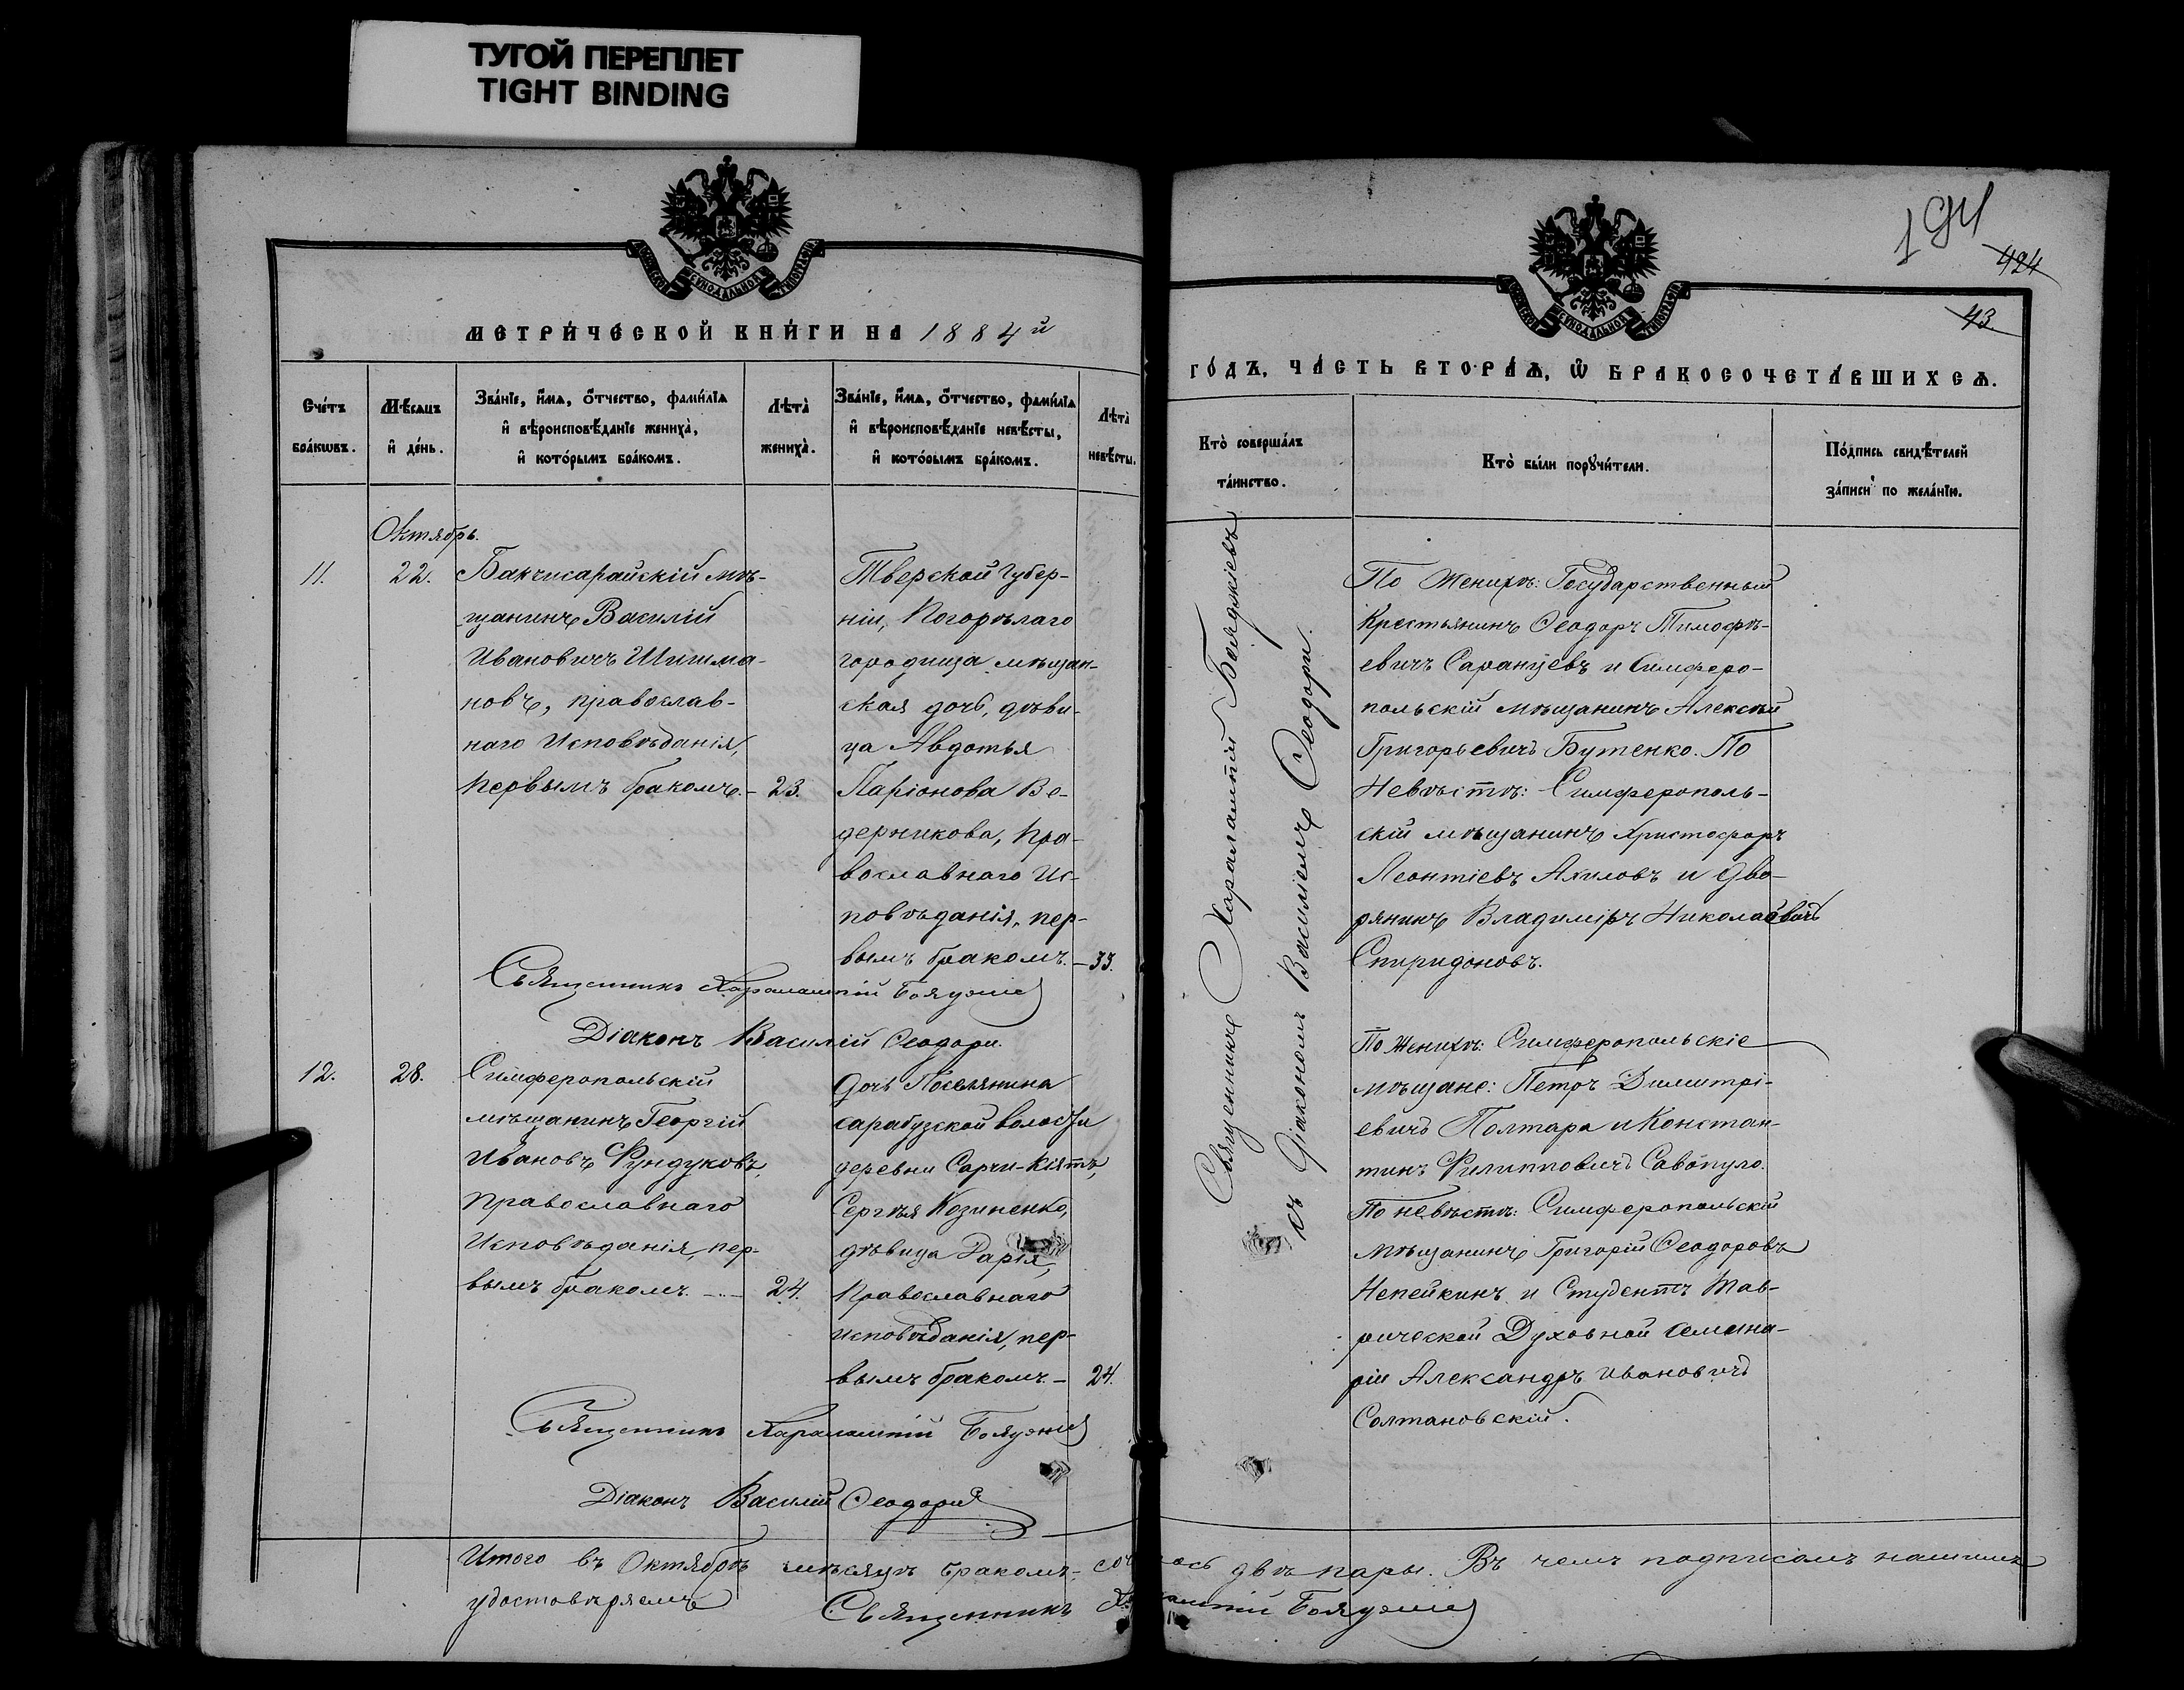 ТУГОЙ ПЕРЕПЛЕТ
TIGHT BINDING
194
424
43.
МЕТРИ́ЧЕСКОЙ КНИ́ГИ НА 1884й
ГО́ДЪ, ЧА́СТЬ ВТОРА́Ѧ, Ѡ БРАКОСОЧЕТА́ВШИХСѦ.
Сче́тъ бра́кѡвъ.
Мѣ́сѧцъ и де́нь.
Зва́нїе, и́мѧ, ѻ́тчество, фами́лїѧ и вѣроисповѣ́данїе жениха̀, и кото́рымъ бра́комъ.
Лѣта̀ жениха̀.
Зва́нїе, и́мѧ, ѻ́тчество, фами́лїѧ и вѣроисповѣ́данїе невѣ́сты, и кото́рымъ бра́комъ.
Лѣта̀ невѣ́сты.
Кто̀ соверша́лъ та́инство.
Кто̀ бы́ли порꙋчи́тели.
По́дпись свидѣ́телей за́писи по жела́нїю.
Октябрь.
11.
22.
Бакчисарайскій мѣ-
щанинъ Василій
Ивановичъ Шишма-
новъ, православ-
наго Исповѣданія,
первымъ бракомъ.-
23.
Тверской Губер-
ніи, Погорѣлаго
городища мѣщан-
ская дочь, дѣви-
ца Авдотья
Ларіонова Ве-
дерникова, Пра-
вославнаго Ис-
повѣданія, пер-
вымъ бракомъ.-
33.
Священникъ Харалампій Бояджіевъ
съ Діакономъ Василіемъ Ѳеодори.
По Женихѣ: Государственный
Крестьянинъ Ѳеодоръ Тимофѣ-
евичъ Саранцевъ и Симферо-
польскій мѣщанинъ Алексѣй
Григорьевичъ Бутенко. По
Невѣстѣ: Симферополь-
скій мѣщанинъ Христофоръ
Леонтіевъ Ахиловъ и Дво-
рянинъ Владиміръ Николаевичъ
Спиридоновъ.
Священникъ Харалампій
Діаконъ Василій Ѳеодори.
12.
28.
Симферопольскій
мѣщанинъ Георгій
Ивановъ Фундуковъ,
Православнаго
Исповѣданія, пер-
вымъ бракомъ.
24.
Дочь Поселянина
сарабузской волости
деревни Сарчи-Кіятъ,
Сергѣя Козиненко,
дѣвица Дарія,
Православнаго
исповѣданія, пер-
вымъ бракомъ.-
24.
По Женихѣ: Симферопольскіе
мѣщане: Петръ Димитрі-
евичъ Полтара и Констан-
тинъ Филипповичъ Савопуло.
По невѣстѣ: Симферопольскій
мѣщанинъ Григорій Ѳеодоровъ
Непейкинъ и Студентъ Тав-
рической Духовной семина-
ріи Александръ Ивановичъ
Солтановскій.
Священникъ Харалампій
Діаконъ Василій Ѳеодори
Итого въ Октябрѣ мѣсяцѣ бракомъ двѣ пары. Въ чемъ подписомъ нашимъ
удостовѣряемъ Священникъ